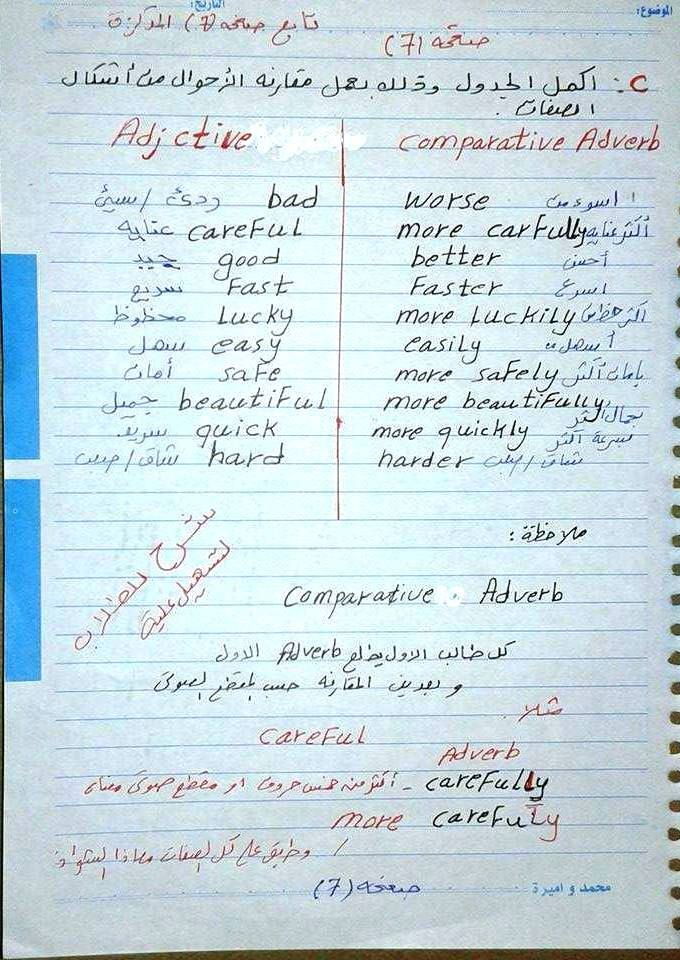 الموضوع: التاريخ:
تابع صفحة (7) المذكرة
صفحة (7)
C: اكمل الجدول وذلك بعمل مقارنه الأحوال من أشكال
الصفات.
Adjctive comparative Adverb
ردئ / سيئ bad worse اسوء من
عنايه careful more carfully أكثر عنايه
جيد good better أحسن
سريع Fast Faster اسرع
محظوظ Lucky more Luckily اكثر حظا
سهل easy easily أسهل
أمان safe more safely بامان أكثر
جميل beautiful more beautifully بجمال اكثر
سريع quick more quickly بسرعة اكثر
شاق / صعب hard harder شاق / صعب
شرح للطلاب
لتسهيل عليه
ملاحظة:
Comparative Adverb
كل طالب الاول يطلع Adverb الاول
و بعدين المقارنه حسب المقطع الصوتي
مثلا
careful
Adverb
carefully - أكثر من خمس حروف او مقطع صوتي
more carefully
/ وطبق على كل الصفات
صفحه (7)
محمد و اميرة